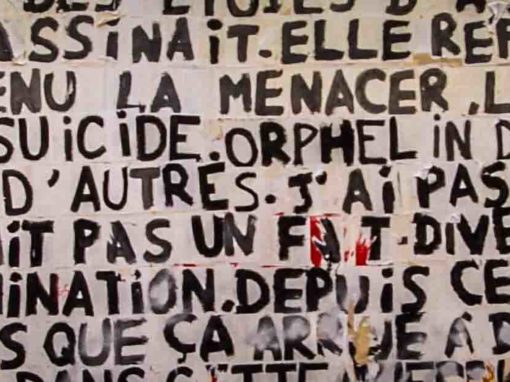 DES ETOILES D'A
ASSINAIT. ELLE REF
ENU LA MENACER, L
SUICIDE. ORPHELIN D
D'AUTRES. J'AI PAS
AIT PAS UN FAIT-DIVE
MINATION. DEPUIS CE
S QUE ÇA ARRIVE À D
DANS CETTE